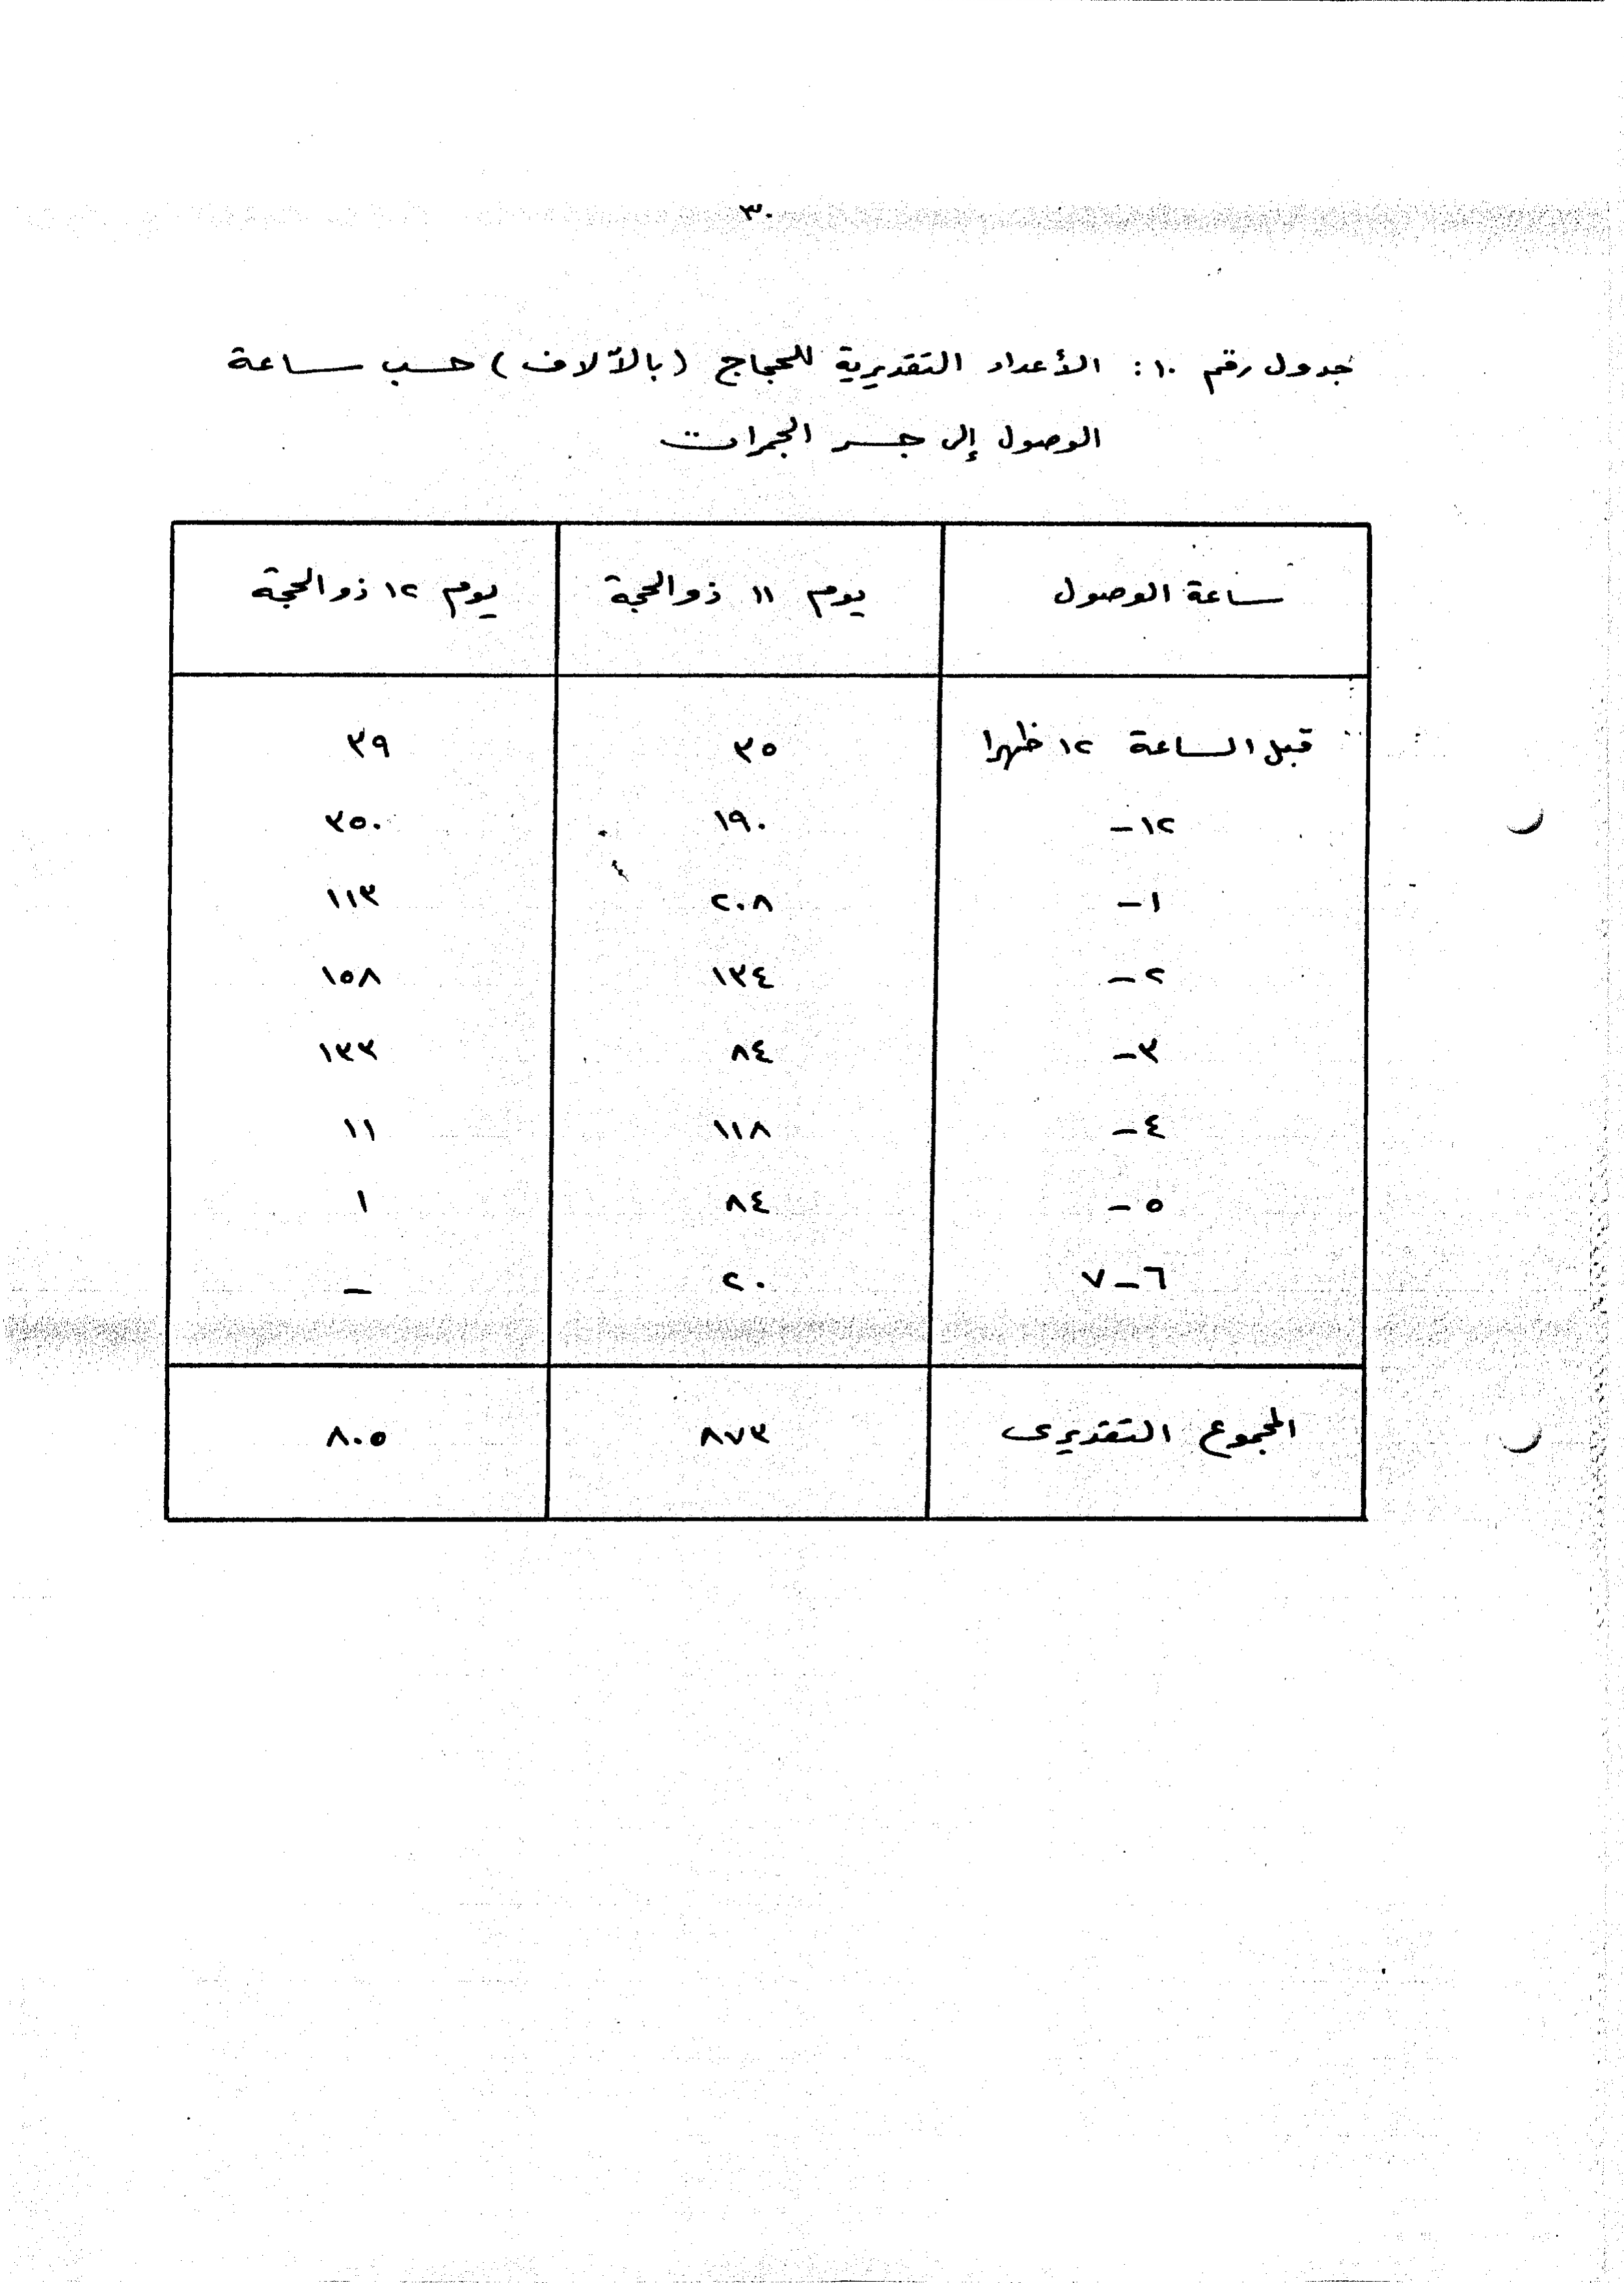 ٣٠
جدول رقم ١٠: الأعداد التقديرية للحجاج (بالآلاف) حسب ساعة
الوصول إلى جسر الجمرات
ساعة الوصول يوم ١١ ذو الحجة يوم ١٢ ذو الحجة
قبل الساعة ١٢ ظهرا ٣٥ ٣٩
١٢- ١٩٠ ٣٥٠
١- ٢٠٨ ١١٣
٢- ١٣٤ ١٥٨
٣- ٨٤ ١٣٣
٤- ١١٨ ١١
٥- ٨٤ ١
٦-٧ ٢٠ -
المجموع التقديرى ٨٧٣ ٨٠٥